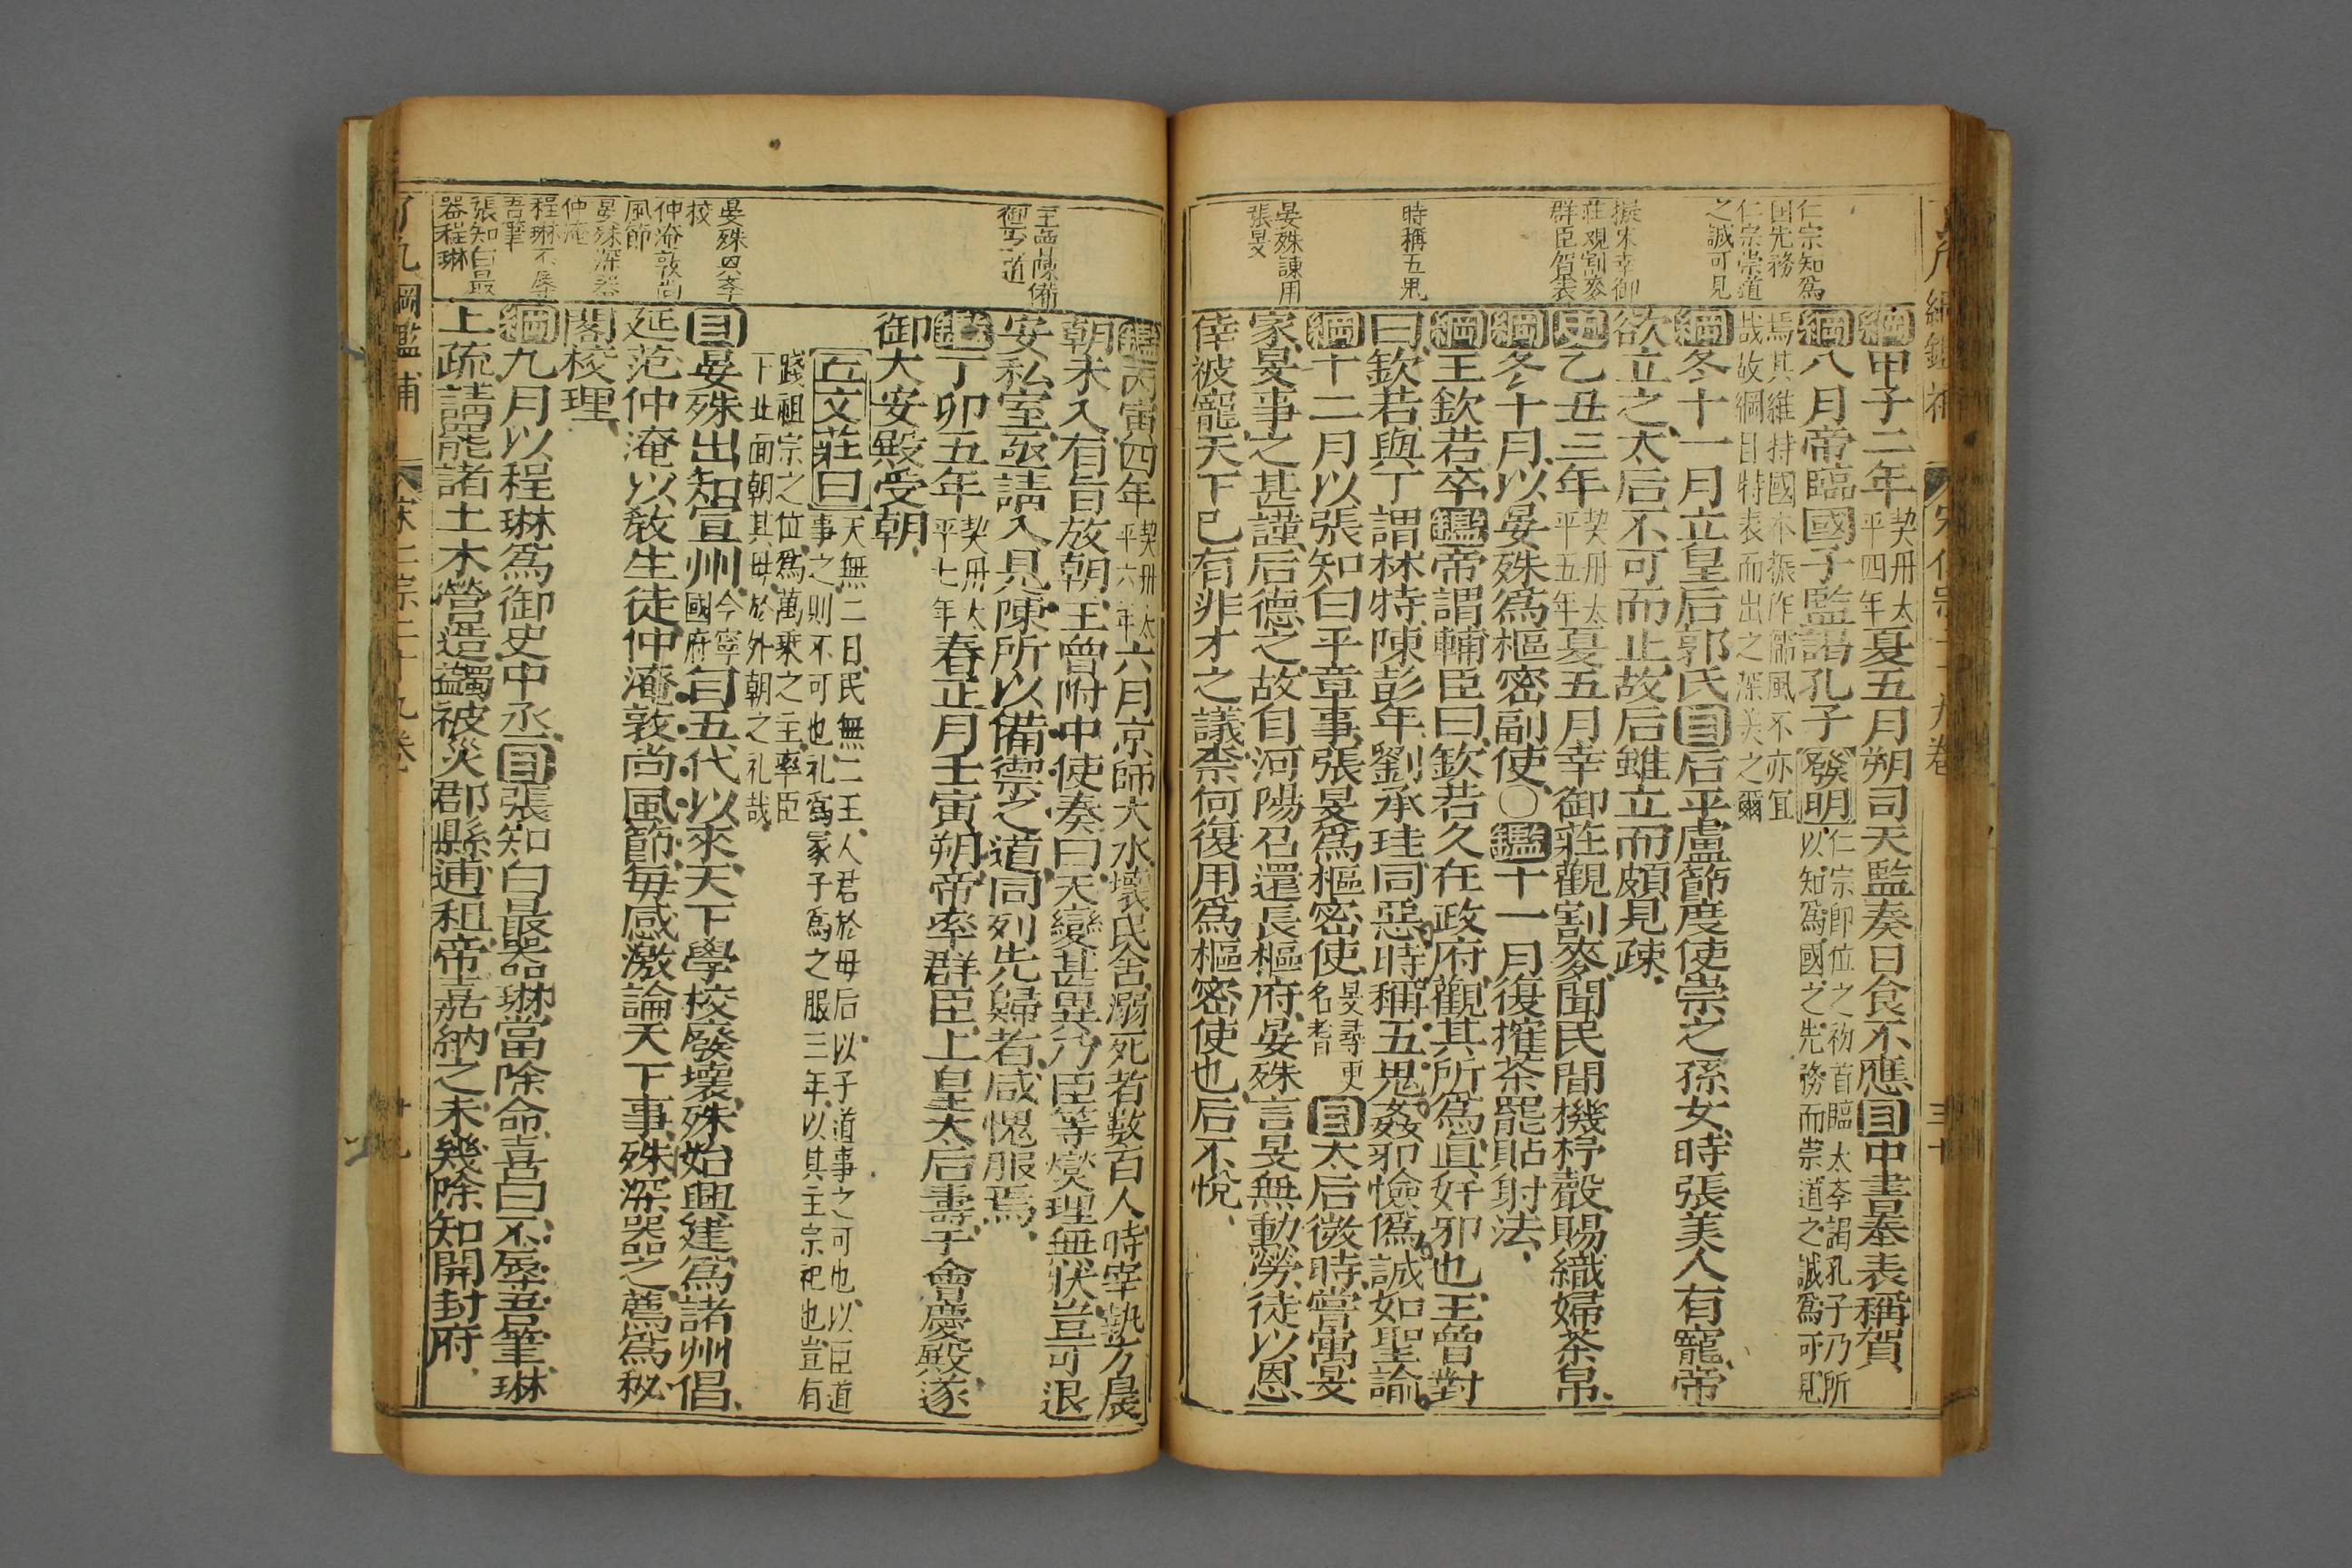 仁宗知爲
国先務
仁宗崇道
之誠可見
擬宋幸御
莊觀割麥
群臣賀表
時稱五鬼
晏殊諫用
張旻
綱甲子二年契丹太平四年夏五月朔司天監奏日食不應目中書奉表稱賀
綱八月帝臨國子監謁孔子發明仁宗即位之初首臨太斈謁孔子乃所以知爲國之先務而崇道之誠爲可見
焉其維持國本振作儒風不亦冝
哉故綱目特表而出之深美之爾
綱冬十一月立皇后郭氏目后平盧節度使崇之孫女時張美人有寵帝
欲立之太后不可而止故后雖立而頗見疎
史乙丑三年契丹太平五年夏五月幸御莊觀割麥聞民間機杼聲賜織婦茶帛
綱冬十月以晏殊爲樞密副使〇鑑十一月復搉茶罷貼射法
綱王欽若卒鑑帝謂輔臣曰欽若久在政府觀其所爲眞奸邪也王曾對
曰欽若與丁謂林特陳彭年劉承珪同惡時稱五鬼姦邪憸僞誠如聖諭
綱十二月以張知白平章事張旻爲樞密使旻尋更名耆目太后微時嘗寓旻
家旻事之甚謹后德之故自河陽召還長樞府晏殊言旻無勳勞徒以恩
倖被寵天下已有非才之議柰何復用爲樞密使也后不悅
王曾陳備
禦之道
晏殊興斈
校
仲淹敦尚
風節
晏殊深器
仲淹
程琳不辱
吾筆
張知白最
器程琳
鑑丙寅四年契丹太平六年六月京師大水壞民舍溺死者數百人時宰執方晨
朝未入有旨放朝王曾附中使奏曰天變甚異乃臣等燮理無狀豈可退
安私室亟請入見陳所以備禦之道同列先歸者咸愧服焉
鑑丁卯五年契丹太平七年春正月壬寅朔帝率群臣上皇太后壽于會慶殿遂
御大安殿受朝
丘文莊曰天無二日民無二王人君於母后以子道事之可也以臣道事之則不可也礼爲冢子爲之服三年以其主宗祀也豈有
踐祖宗之位爲萬乘之主率臣
下北面朝其母於外朝之礼哉
目晏殊出知宣州今寧國府自五代以來天下學校廢壞殊始興建爲諸州倡
延范仲淹以敎生徒仲淹敦尚風節每感激論天下事殊深器之薦爲秘
閣校理
綱九月以程琳爲御史中丞目張知白最器琳當除命喜曰不辱吾筆琳
上疏請罷諸土木營造蠲被災郡縣逋租帝嘉納之未幾除知開封府
了凡綱鑑補 宋仁宗二十九卷